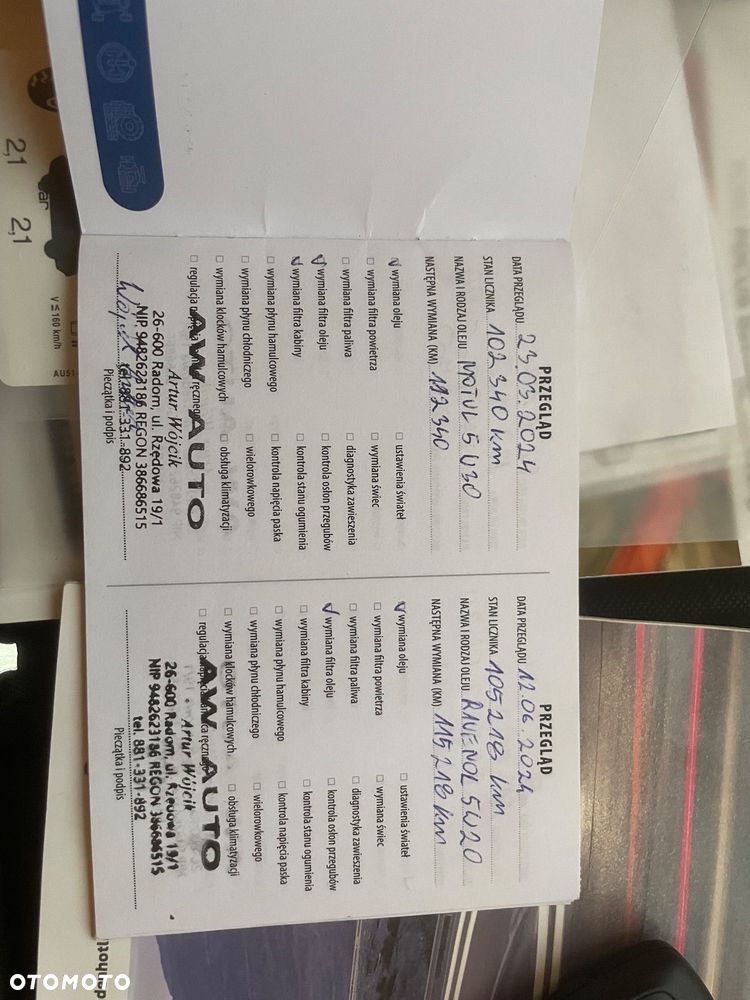 PRZEGLĄD
DATA PRZEGLĄDU 23.03.2024
STAN LICZNIKA 102 340 km
NAZWA I RODZAJ OLEJU MOTUL 5W30
NASTĘPNA WYMIANA (KM) 112340
wymiana oleju
ustawienia świateł
wymiana filtra powietrza
wymiana świec
wymiana filtra paliwa
diagnostyka zawieszenia
wymiana filtra oleju
kontrola osłon przegubów
wymiana filtra kabiny
kontrola stanu ogumienia
wymiana płynu hamulcowego
kontrola napięcia paska
wymiana płynu chłodniczego
wielorowkowego
wymiana klocków hamulcowych
obsługa klimatyzacji
regulacja napięcia ręcznego
AW AUTO
Artur Wójcik
26-600 Radom, ul. Rzędowa 19/1
NIP 9482623186 REGON 386686515
tel. 881-331-892
Pieczątka i podpis
PRZEGLĄD
DATA PRZEGLĄDU 12.06.2024
STAN LICZNIKA 105218 km
NAZWA I RODZAJ OLEJU RAVENOL 5W20
NASTĘPNA WYMIANA (KM) 115218 km
wymiana oleju
ustawienia świateł
wymiana filtra powietrza
wymiana świec
wymiana filtra paliwa
diagnostyka zawieszenia
wymiana filtra oleju
kontrola osłon przegubów
wymiana filtra kabiny
kontrola stanu ogumienia
wymiana płynu hamulcowego
kontrola napięcia paska
wymiana płynu chłodniczego
wielorowkowego
wymiana klocków hamulcowych
obsługa klimatyzacji
regulacja
AW AUTO
Artur Wójcik
26-600 Radom, ul. Rzędowa 19/1
NIP 9482623186 REGON 386686515
tel. 881-331-892
Pieczątka i podpis
2,1
2,1
V ≤ 160 km/h
AU51
OTOMOTO